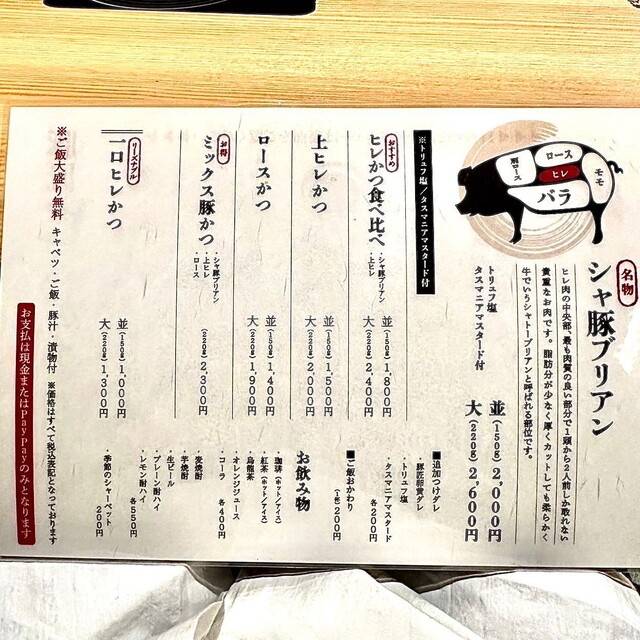 肩ロース
ロース
ヒレ
バラ
モモ
名物
シャ豚ブリアン
ヒレ肉の中央部、最も肉質の良い部分で1頭から2人前しか取れない
貴重なお肉です。脂肪分が少なく厚くカットしても柔らかく
牛でいうシャトーブリアンと呼ばれる部位です。
トリュフ塩
タスマニアマスタード付
並(150g) 2,000円
大(220g) 2,600円
※トリュフ塩/タスマニアマスタード付
おすすめ
ヒレかつ食べ比べ
・シャ豚ブリアン
・上ヒレ
並(150g) 1,800円
大(220g) 2,400円
上ヒレかつ
並(150g) 1,500円
大(220g) 2,000円
ロースかつ
並(150g) 1,400円
大(220g) 1,900円
お得
ミックス豚かつ
・シャ豚ブリアン
・上ヒレ
・ロース
(220g) 2,300円
リーズナブル
一口ヒレかつ
並(150g) 1,000円
大(220g) 1,300円
■追加つけダレ
・豚匠卵黄ダレ
・トリュフ塩
・タスマニアマスタード
各200円
■ご飯おかわり
(1名) 200円
お飲み物
・珈琲(ホット/アイス)
・紅茶(ホット/アイス)
・烏龍茶
・オレンジジュース
・コーラ
各400円
・麦焼酎
・芋焼酎
・生ビール
・プレーン酎ハイ
・レモン酎ハイ
各550円
・季節のシャーベット
200円
※ご飯大盛り無料
キャベツ・ご飯・豚汁・漬物付
※価格はすべて税込表記となっております
お支払は現金またはPayPayのみとなります